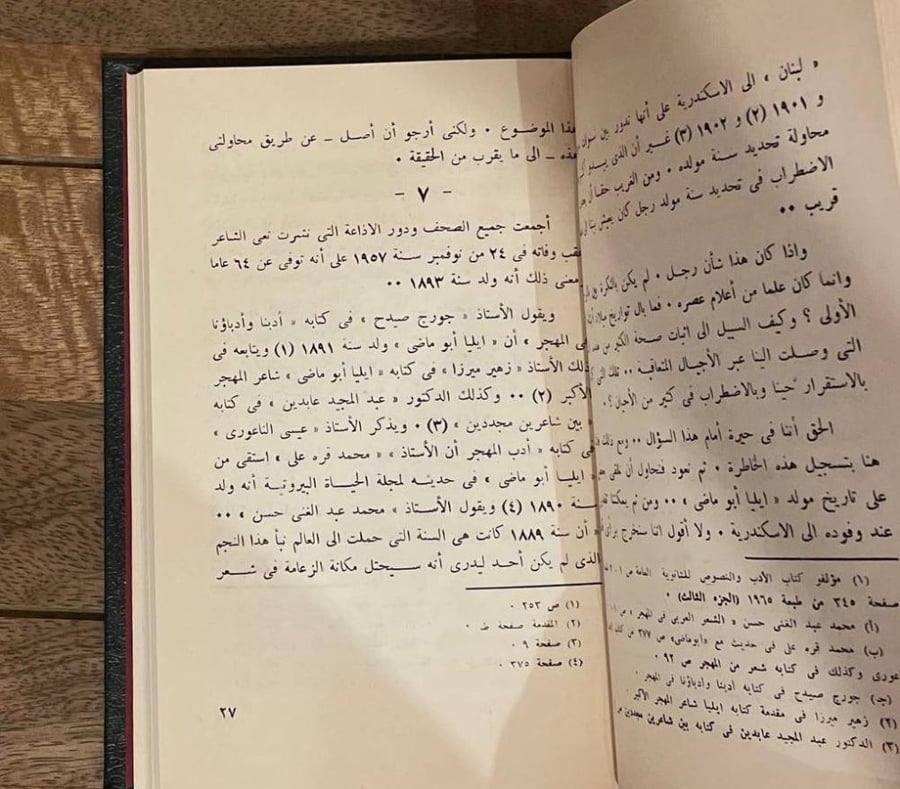 « لبنان » الى الاسكندرية على أنها تدور بين سنوات
و ١٩٠١ (٢) و ١٩٠٢ (٣) غير أن الذى يبدو
محاولة تحديد سنة مولده ٠ ومن الغريب حقا أن
الاضطراب فى تحديد سنة مولد رجل كان يعيش بيننا
قريب ٠٠
واذا كان هذا شأن رجل ٠ لم يكن بالنكرة
وانما كان علما من أعلام عصره ٠ فما بال تواريخ ميلاد
الأولى ؟ وكيف السبيل الى اثبات صحة الكثير من
التى وصلت الينا عبر الأجيال المتعاقبة ٠٠ تلك التى
بالاستقرار حينا وبالاضطراب فى كثير من الأحيان ؟ ٠
الحق أننا فى حيرة أمام هذا السؤال ٠٠ ومع ذلك
هنا بتسجيل هذه الخاطرة ٠ ثم نعود فنحاول أن نلقى
على تاريخ مولد « ايليا أبو ماضى » ٠٠ ومن ثم يمكننا
عند وفوده الى الاسكندرية ٠ ولا أقول اننا سنخرج برأى
(١) مؤلفو كتاب الأدب والنصوص للثانوية العامة ص
صفحة ٣٤٥ من طبعة ١٩٦٥ (الجزء الثالث) ٠
(أ) محمد عبد الغنى حسن « الشعر العربى فى المهجر » ص
(ب) محمد قره على فى حديث مع «أبوماضى» ص ٣٧٧ من كتاب
عورى وكذلك فى كتابه شعر من المهجر ص ٩٢ ٠
(جـ) جورج صيدح فى كتابه أدبنا وأدباؤنا فى المهجر ٠
(٢) زهير ميرزا فى مقدمة كتابه ايليا شاعر المهجر الأكبر ٠
(٣) الدكتور عبد المجيد عابدين فى كتابه بين شاعرين مجددين ص
هذا الموضوع ٠ ولكنى أرجو أن أصل ــ عن طريق محاولتى
هذه ــ الى ما يقرب من الحقيقة ٠
- ٧ -
أجمعت جميع الصحف ودور الاذاعة التى نشرت نعى الشاعر
عقب وفاته فى ٢٤ من نوفمبر سنة ١٩٥٧ على أنه توفى عن ٦٤ عاما
ومعنى ذلك أنه ولد سنة ١٨٩٣ ٠٠
ويقول الأستاذ « جورج صيدح » فى كتابه « أدبنا وأدباؤنا
فى المهجر » أن « ايليا أبو ماضى » ولد سنة ١٨٩١ (١) ويتابعه فى
ذلك الأستاذ « زهير ميرزا » فى كتابه « ايليا أبو ماضى » شاعر المهجر
الأكبر (٢) ٠٠ وكذلك الدكتور « عبد المجيد عابدين » فى كتابه
« بين شاعرين مجددين » (٣) ٠ ويذكر الأستاذ « عيسى الناعورى »
فى كتابه « أدب المهجر أن الأستاذ » « محمد قره على » استقى من
« ايليا أبو ماضى » فى حديثه لمجلة الحياة البيروتية أنه ولد
سنة ١٨٩٠ (٤) ويقول الأستاذ « محمد عبد الغنى حسن » ٠٠
« أن سنة ١٨٨٩ كانت هى السنة التى حملت الى العالم نبأ هذا النجم
الذى لم يكن أحد ليدرى أنه سيحتل مكانة الزعامة فى شعر
(١) ص ٢٥٣ ٠
(٢) المقدمة صفحة ط ٠
(٣) صفحة ٩ ٠
(٤) صفحة ٣٧٥ ٠
٢٧